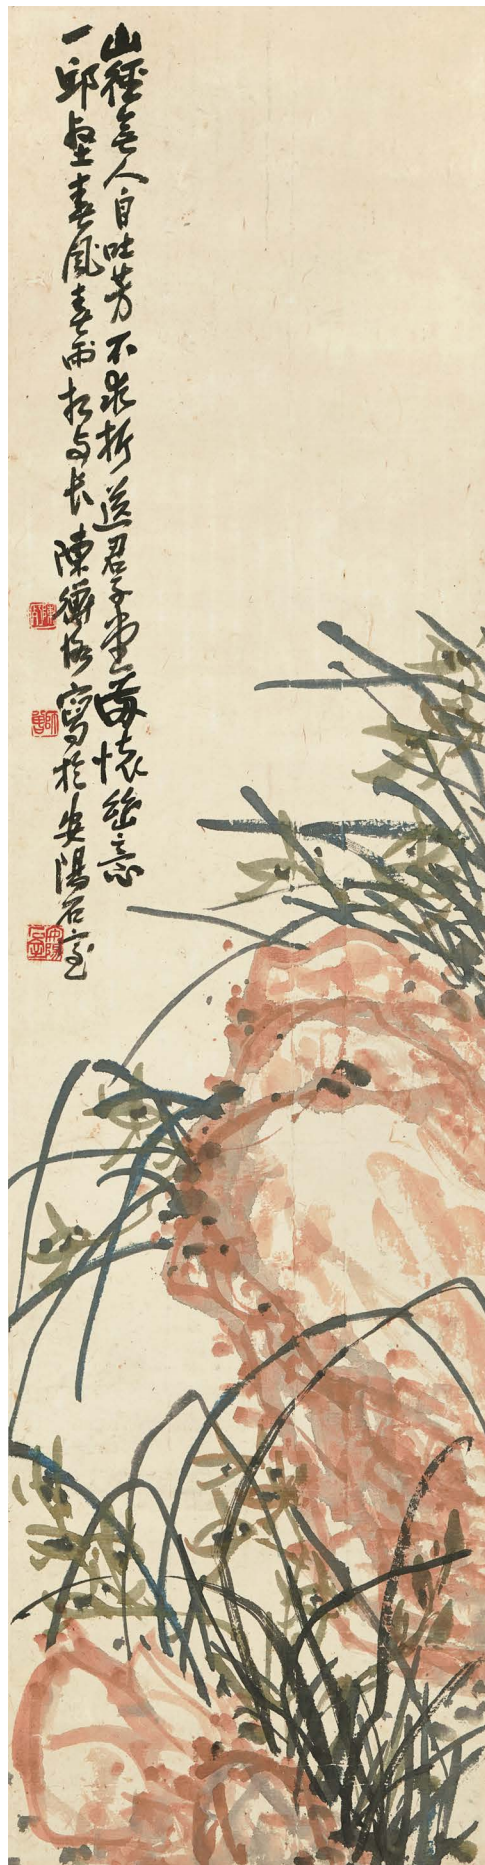 山徑無人自吐芳不求折送君子堂留懷幽意
一邱壑春風春雨相与長陳衡恪寫於安陽石室
安陽石室